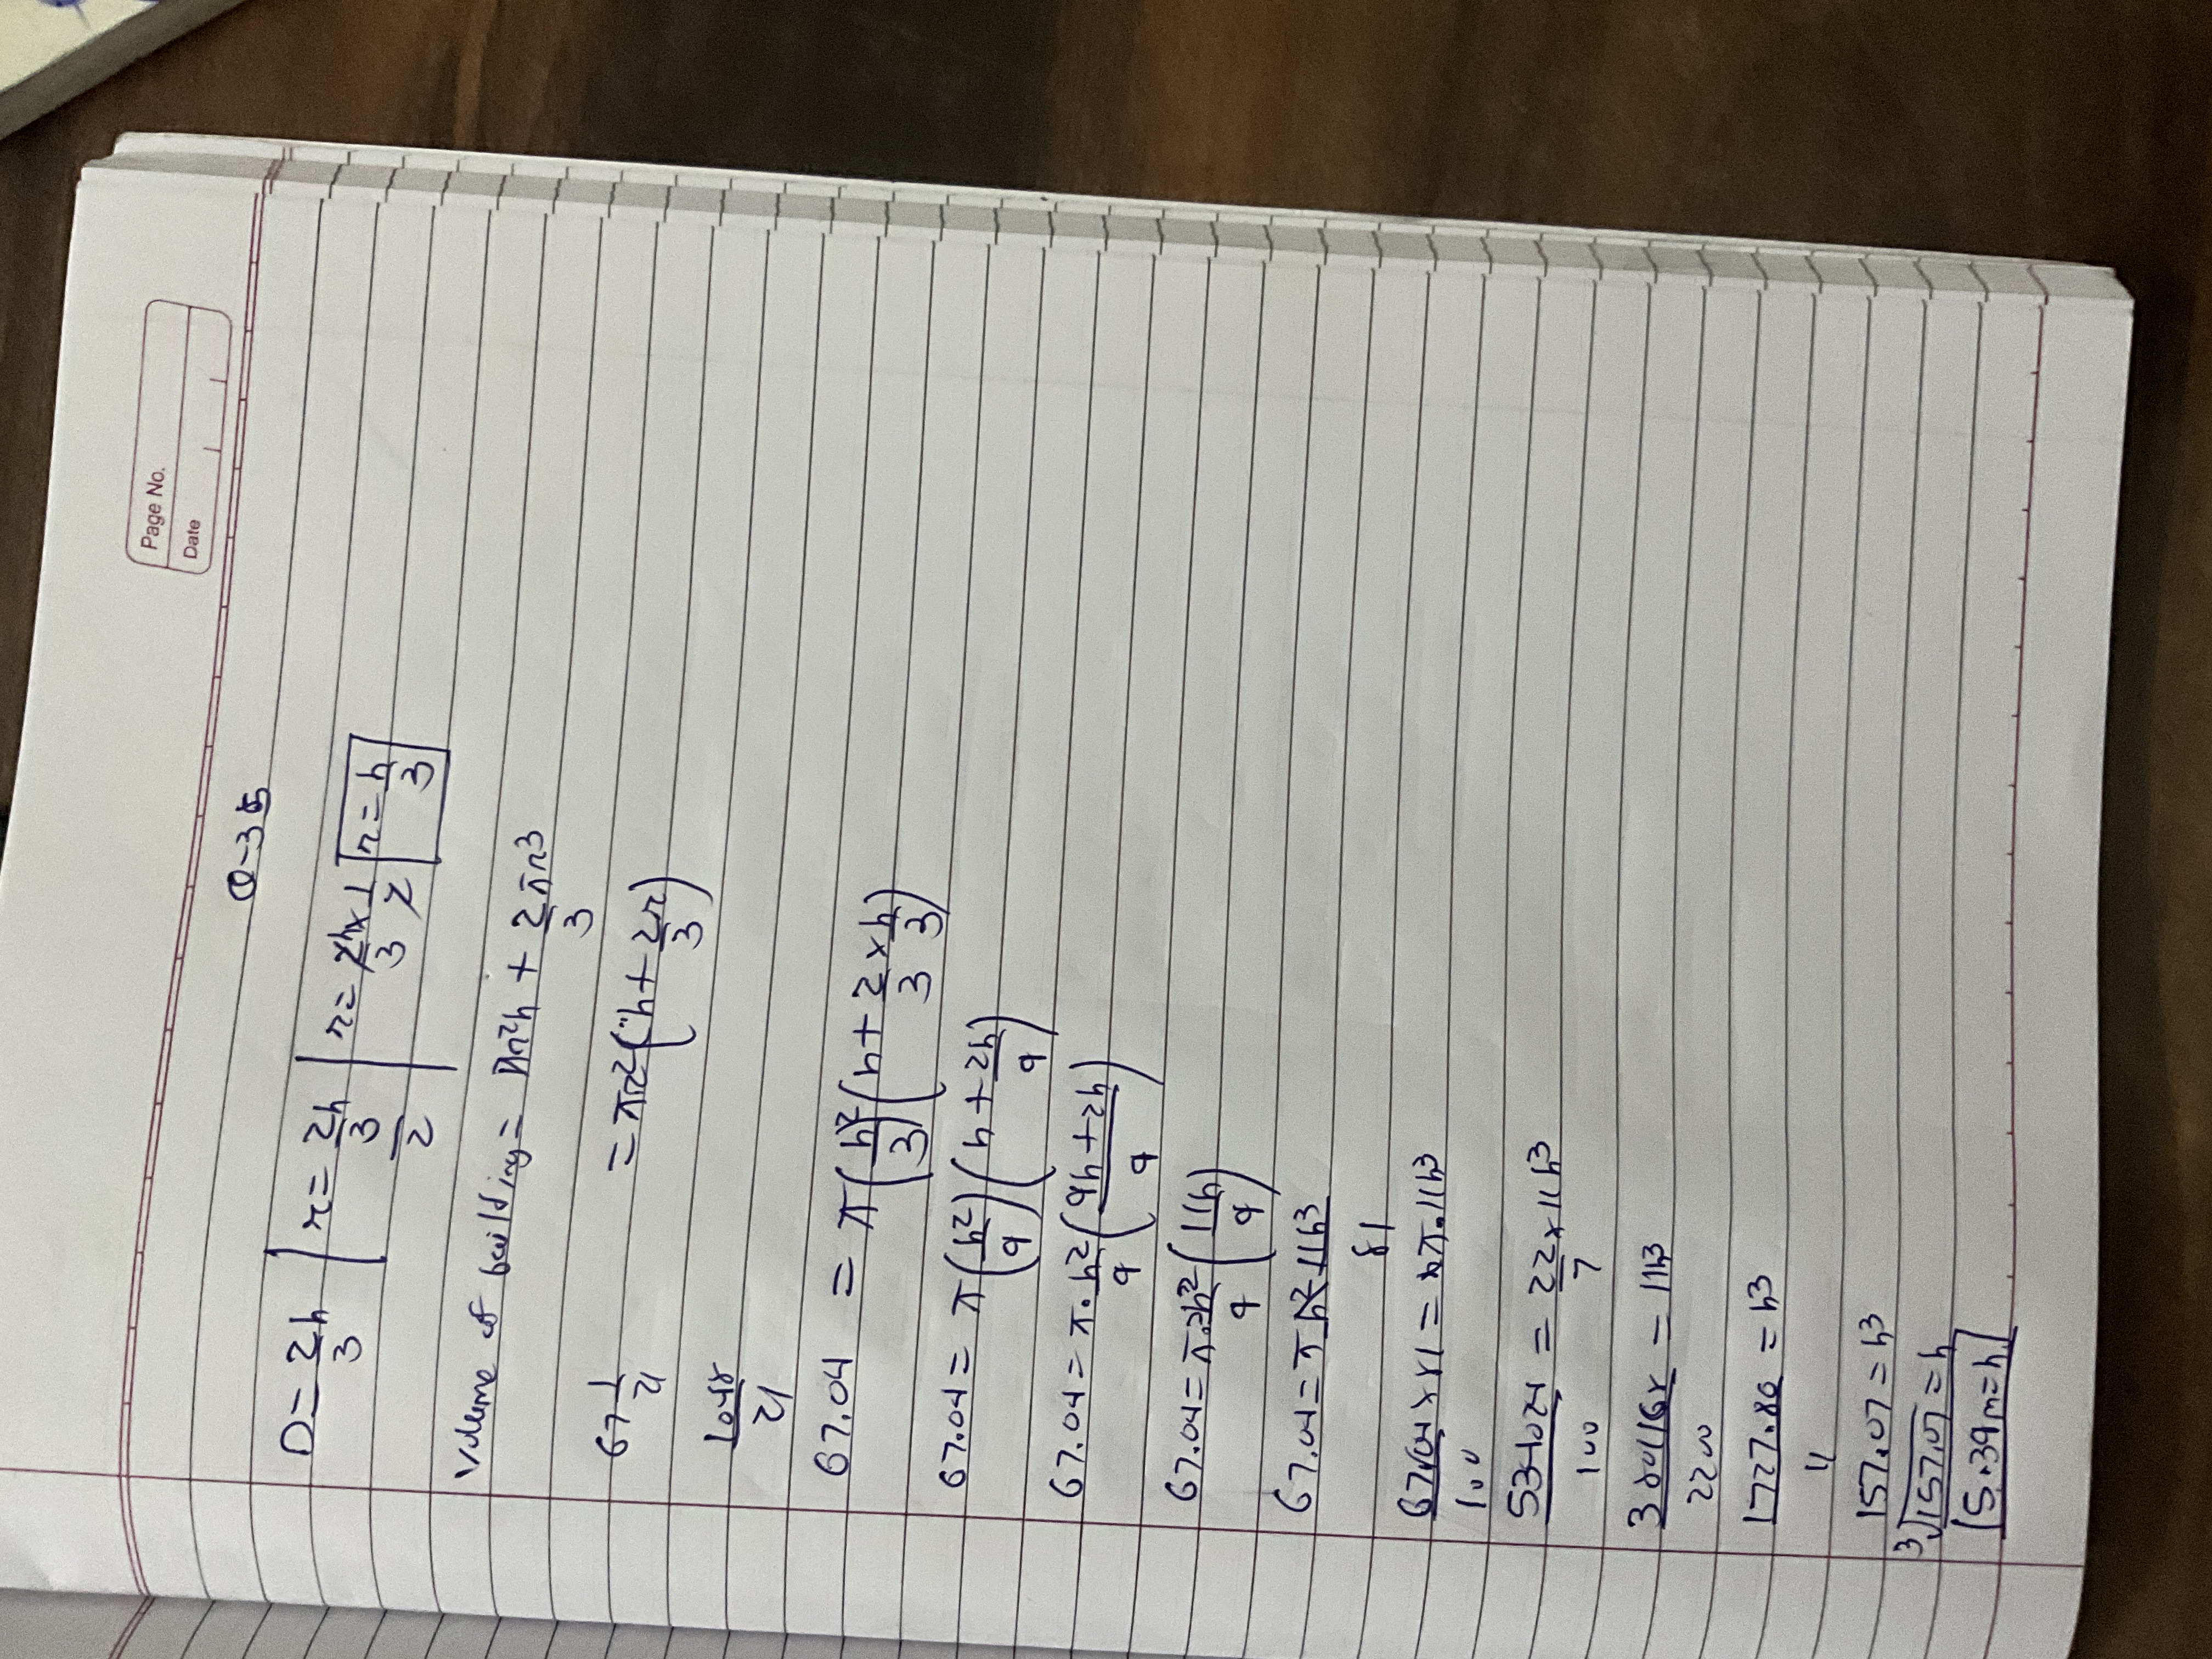 Page No.
Date
Q-35
D = 2h/3 | r = 2h/3/2 | r = 2h/3 × 1/2 r = h/3
Volume of building = πr²h + 2πr³/3
67 1/21 = πr²(h + 2r/3)
1048/21
67.04 = π(h/3)²(h + 2/3 × h/3)
67.04 = π(h²/9)(h + 2h/9)
67.04 = π.h²/9(9h+2h/9)
67.04 = π.h²/9(11h/9)
67.04 = π 11h³/81
6704/100 × 81 = π.11h³
534024/100 = 22/7 × 11h³
3808168/2200 = 11h³
1727.80/11 = h³
157.07 = h³
³√157.07 = h
5.39m = h